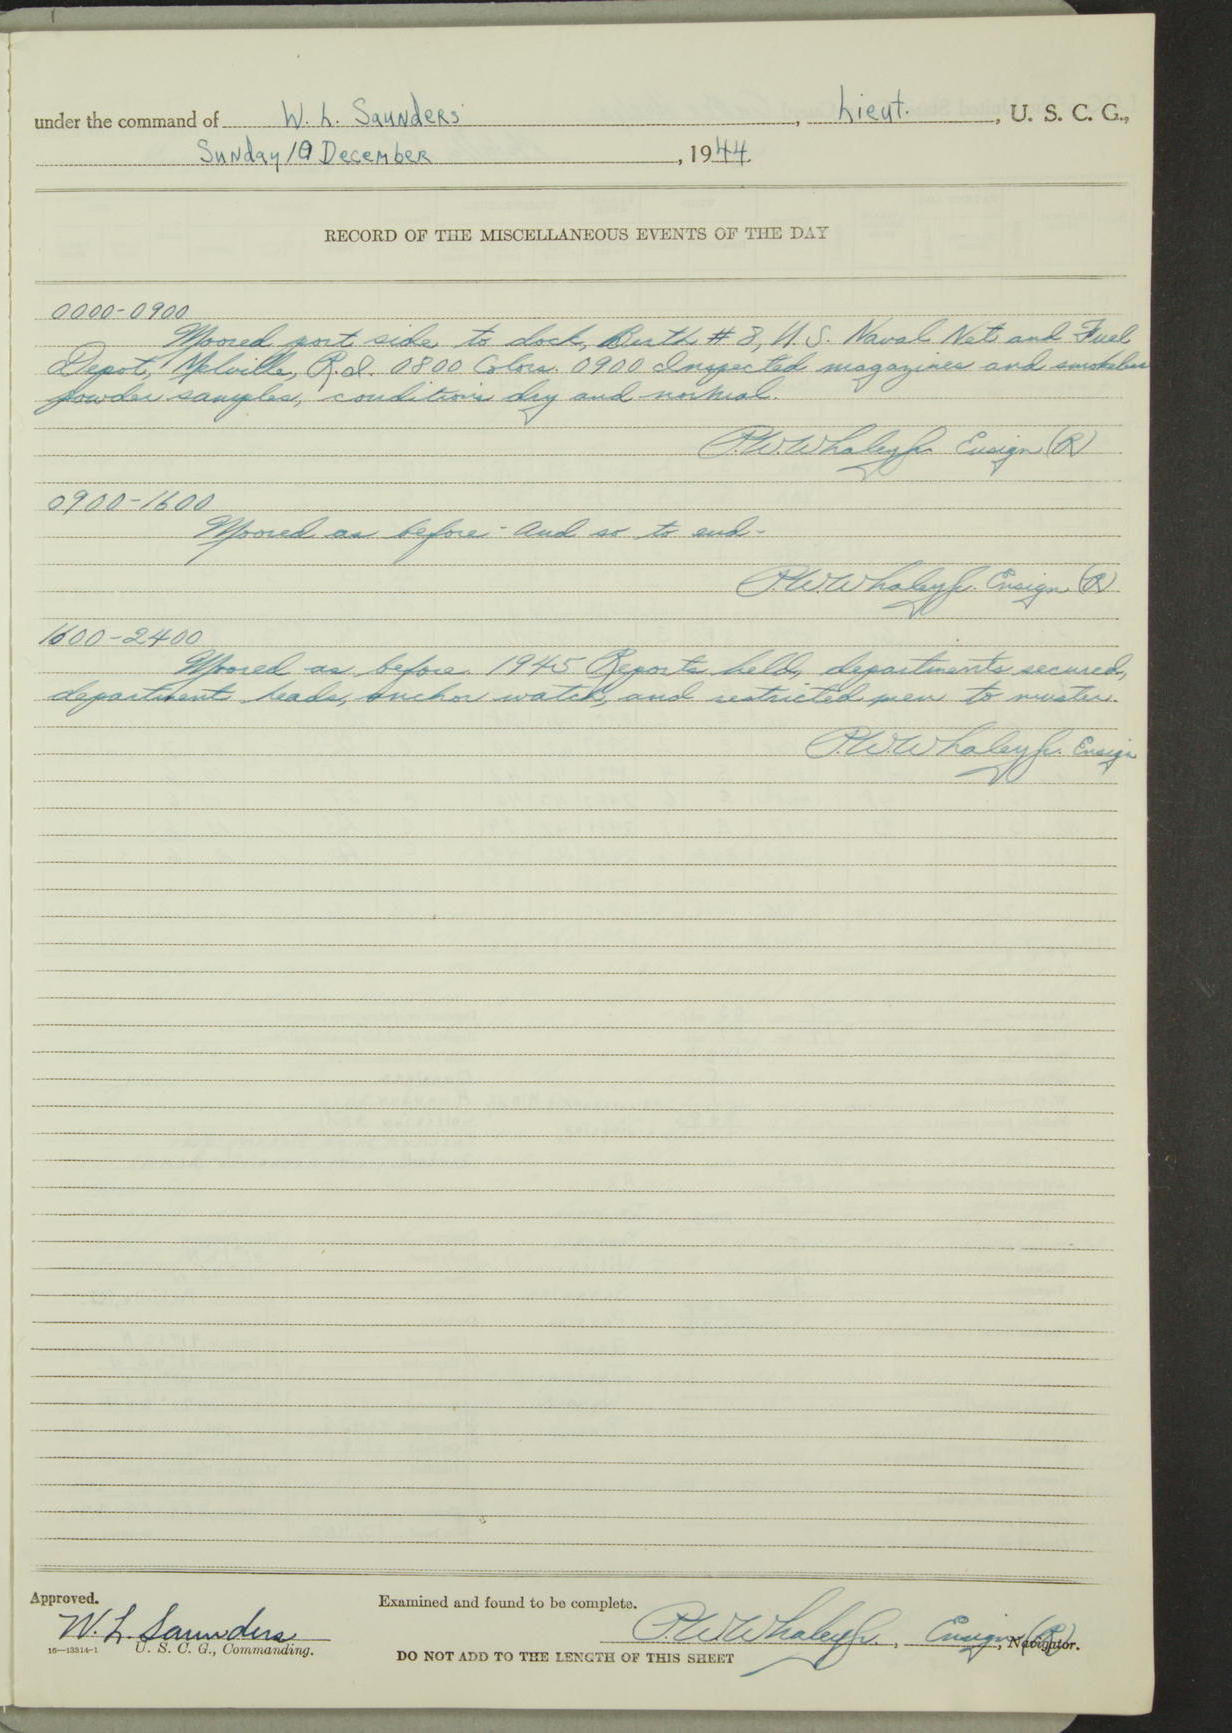 under the command of W. L. Saunders, Lieut., U. S. C. G.,
Sunday 10 December, 1944.
RECORD OF THE MISCELLANEOUS EVENTS OF THE DAY
0000-0900
Moored port side to dock, Berth # 3, U.S. Naval Net and Fuel
Depot, Melville, R.I. 0800 Colors. 0900 Inspected magazines and smokeless
powder samples, conditions dry and normal.
P.W. Whaley Jr. Ensign (R)
0900-1600
Moored as before - and so to end -
P.W. Whaley Jr. Ensign (R)
1600-2400
Moored as before. 1945 Reports held, departments secured,
department heads, anchor watch, and restricted men to muster.
P.W. Whaley Jr. Ensign
Approved.
Examined and found to be complete.
W. L. Saunders
P.W. Whaley Jr., Ensign (R), Navigator.
16—13314-1 U. S. C. G., Commanding.
DO NOT ADD TO THE LENGTH OF THIS SHEET